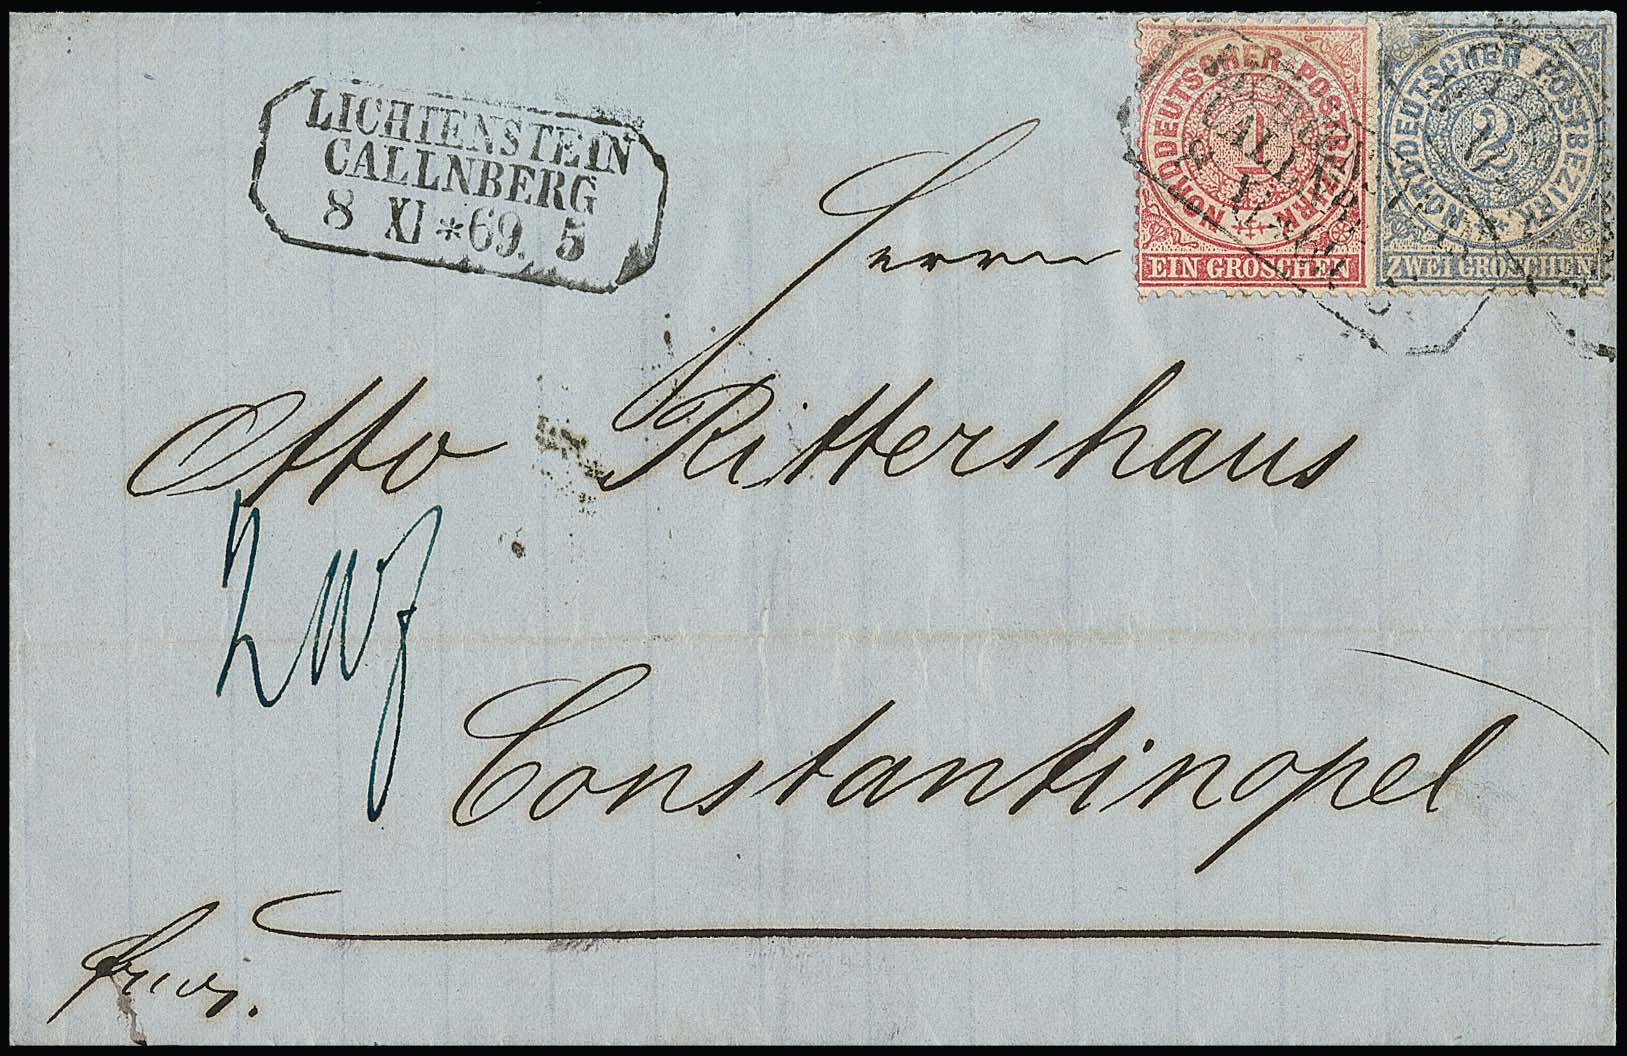 LICHTENSTEIN
CALLNBERG
8 XI * 69. 5
NORDDEUTSCHER POSTBEZIRK
1
EIN GROSCHEN
NORDDEUTSCHEN POSTBEZIRK
2
ZWEI GROSCHEN
Herrn
Otto Rittershaus
Constantinopel